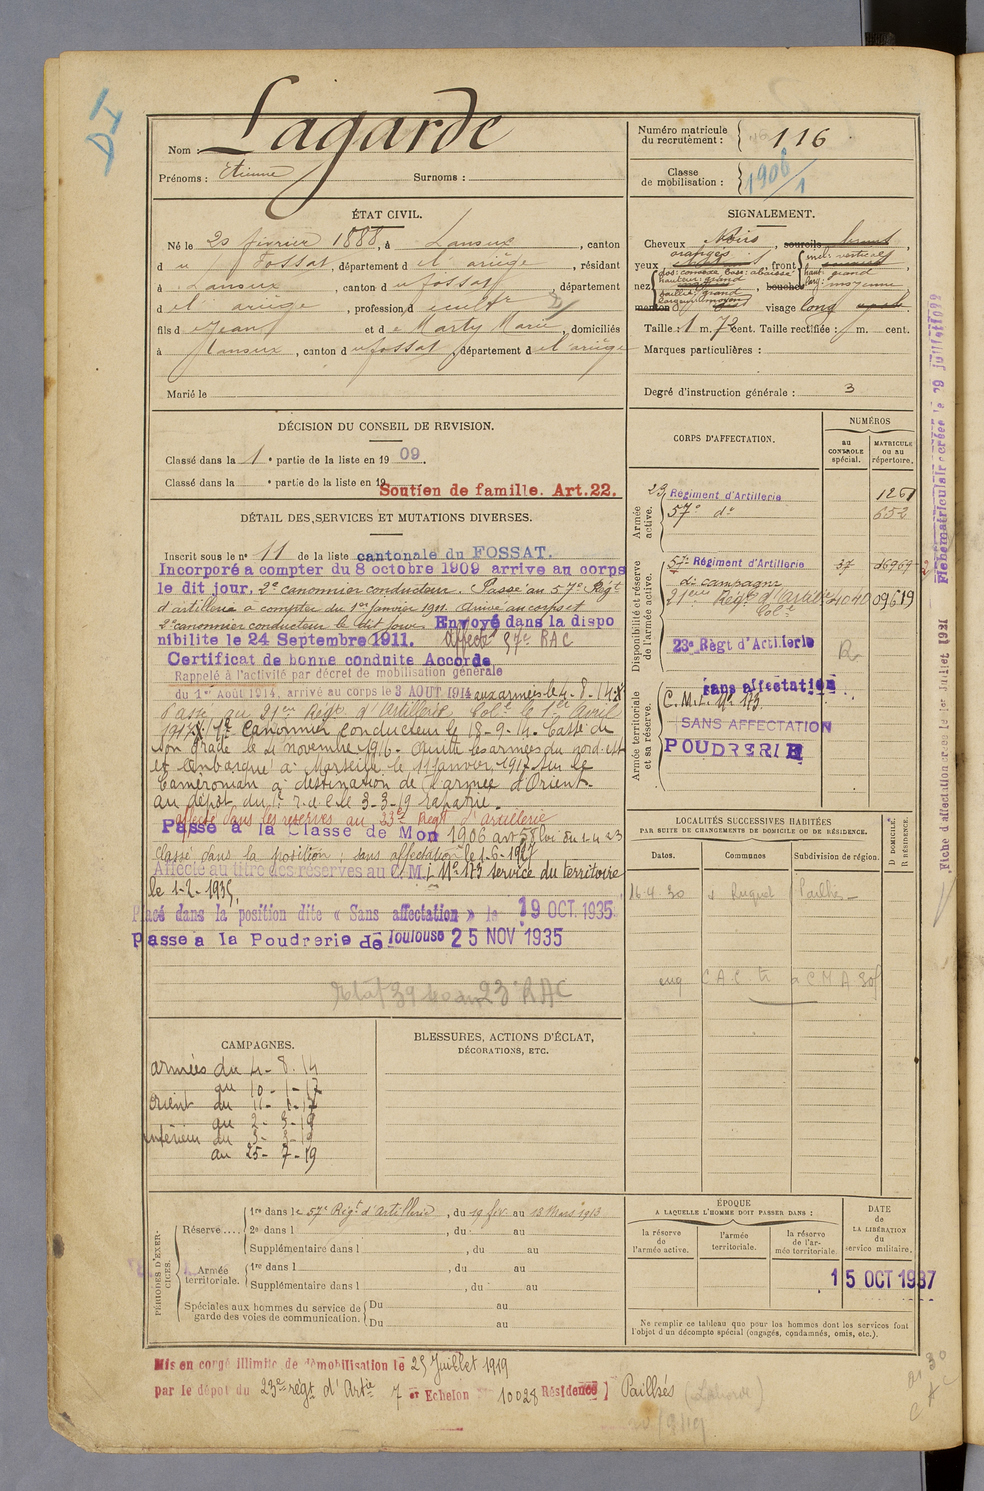 DI
Nom : Lagarde
Prénoms : Etienne Surnoms :
Numéro matricule du recrutement : 116
Classe de mobilisation : 1906/1
ÉTAT CIVIL.
Né le 20 février 1888, à Lanoux, canton
du Fossat, département de l'ariège, résidant
à Lanoux, canton du fossat, département
de l'ariège, profession de cultr
fils de Jean et de Marty Marie, domiciliés
à Lanoux, canton du fossat, département de l'ariège
Marié le
SIGNALEMENT.
Cheveux Noirs, sourcils bruns,
yeux orangés, front incl: verticale
haut: grand
larg: moyenne
nez dos: convexe base: abaissée
hauteur: grand
saillie: grand
largeur: moyen
bouche
menton visage long
Taille : 1 m. 72 cent. Taille rectifiée : m. cent.
Marques particulières :
Degré d'instruction générale : 3
DÉCISION DU CONSEIL DE REVISION.
Classé dans la 1e partie de la liste en 1909.
Classé dans la e partie de la liste en 19
Soutien de famille. Art.22.
DÉTAIL DES SERVICES ET MUTATIONS DIVERSES.
Inscrit sous le no 11 de la liste cantonale du FOSSAT.
Incorporé a compter du 8 octobre 1909 arrive au corps
le dit jour. 2e canonnier conducteur. Passé au 57e Régt
d'artillerie à compter du 1er Janvier 1911. Arrivé au corps et
2e canonnier conducteur le dit jour. Envoyé dans la dispo
nibilite le 24 Septembre 1911. Affecté 57e RAC
Certificat de bonne conduite Accordé
Rappelé à l'activité par décret de mobilisation générale
du 1er Août 1914, arrivé au corps le 3 AOUT 1914 aux armées le 4-8-14
Passé au 21em Régt d'Artillerie Cole le 1er Avril
1917 1r Canonnier Conducteur le 18-9-14. Cassé de
son grade le 4 novembre 1916. Quitte les armées du nord-est
et s'embarque à Marseille le 11 Janvier 1917 sur le
Caméronian à destination de l'armée d'Orient.
au dépôt du 1r r.a.c. le 3-3-19 rapatrié.
affecté dans les réserves au 23e Régt d'artillerie
Passé à la Classe de Mob 1906 art 58 loi du 1-4-23
Classé dans la position : sans affectation le 1-6-1927
Affecté au titre des réserves au C.M.I No 173 service du territoire
le 1-2-1935.
Placé dans la position dite « Sans affectation » le 19 OCT. 1935
passe a la Poudrerie de Toulouse 25 NOV 1935
23e RAC
CORPS D'AFFECTATION.
NUMÉROS
au CONTROLE spécial.
MATRICULE ou au répertoire.
Armée active.
23 Régiment d'Artillerie 1261
57e do 652
Disponibilité et réserve de l'armée active.
57e Régiment d'Artillerie 57
de campagne
21eme Régt d'Artillerie Cole 4040 09619
23e Règt d'Artillerie
R
Armée territoriale et sa réserve.
sans affectation
C.M.I. No 173.
SANS AFFECTATION
POUDRERIE
LOCALITÉS SUCCESSIVES HABITÉES
PAR SUITE DE CHANGEMENTS DE DOMICILE OU DE RÉSIDENCE.
Dates. Communes Subdivision de région. D DOMICILE. R RÉSIDENCE.
16 4 30 Pailhès
CAMPAGNES.
armées du 4-8-14
au 10-1-17
orient du 11-1-17
au 2-3-19
intérieur du 3-3-19
au 25-7-19
BLESSURES, ACTIONS D'ÉCLAT,
DÉCORATIONS, ETC.
PÉRIODES D'EXERCICES.
Réserve.... 1re dans le 57e Régt d'Artillerie, du 19 fév au 13 Mars 1913
2e dans l , du au
Supplémentaire dans l , du au
Armée territoriale. 1re dans l , du au
Supplémentaire dans l , du au
Spéciales aux hommes du service de garde des voies de communication. Du au
Du au
ÉPOQUE
A LAQUELLE L'HOMME DOIT PASSER DANS :
la réserve de l'armée active.
l'armée territoriale.
la réserve de l'armée territoriale.
DATE DE LA LIBÉRATION du service militaire.
15 OCT 1937
Ne remplir ce tableau que pour les hommes dont les services font
l'objet d'un décompte spécial (engagés, condamnés, omis, etc.).
Mis en congé illimité de démobilisation le 25 Juillet 1919
par le dépôt du 23e régt d'Artie 7e Echelon 10028 Résidence Pailhés